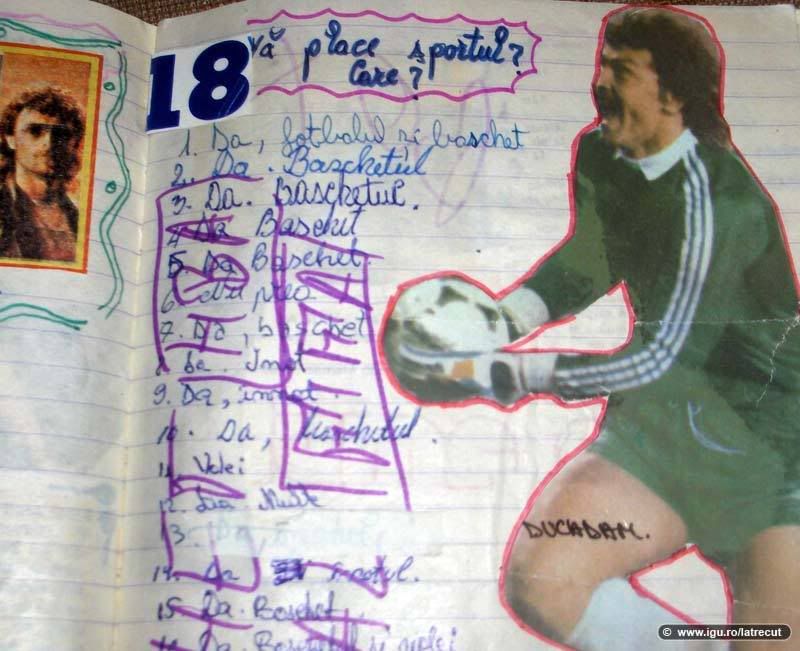 18
vă place sportul?
Care?
1. Da, fotbalul si baschet
2. Da. Bascketul
3. Da. BASCKETUL.
4. Da Baschet
5. Da Baschet.
6.
7. Da, baschet
8. Da. Inot
9. Da, innot.
10. Da, baschetul.
11. Volei
12. Da. Multe
13.
14. Da inotul.
15. Da. Baschet
16. Da. Baschetul si volei
DUCADAM.
© www.igu.ro/latrecut